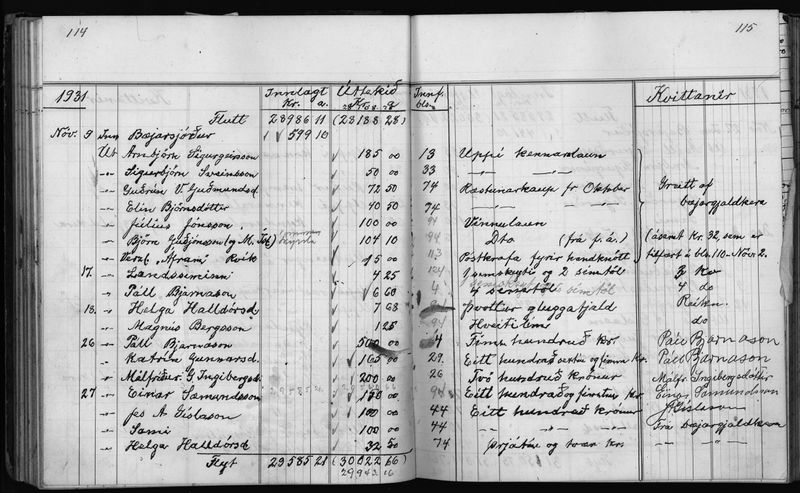 114
115
1931 Innlagt Kr. a. Úttekið Kr. a. Innf. bls. Kvittanir
Flutt 23986 11 (23188 28)
Nóv. 9 Inn Bæjarsjóður 599 10
Út Arnbjörn Sigurgeirsson 185 00 13 Uppí kennaralaun
-"- Sigurbjörn Sveinsson 50 00 33 -"- -"-
-"- Guðrún V. Guðmundsd. 72 50 74 Ræstunarkaup fr Október Greitt af
-"- Elín Björnsdóttir 40 50 74 -"- -"- -"- bæjargjaldkera
-"- Júlíus Jónsson 100 00 94 Vinnulaun
-"- Björn Guðjónsson (og M. 104 10 94 Dto (frá f. á.) (ásamt Kr. 32, sem er
-"- Versl. "Áfram" Rvík 15 00 113 Póstkrafa fyrir handknött tilfært á bls. 110 - Nóv 2.
17. -"- Landssíminn 4 25 124 símskeyti og 2 símtöl 3 Kv
-"- Páll Bjarnason 6 60 4 símtöl 4 do
18. -"- Helga Halldórsd 7 68 94 þvottur gluggatjald Reikn.
-"- Magnús Bergsson 1 25 Hveiti do
26 -"- Páll Bjarnason 500 00 4 Fimm hundruð kr Páll Bjarnason
-"- Katrín Gunnarsd. 165 00 29. Eitt hundrað sextíu og fimm kr. Páll Bjarnason
-"- Málfríður G. Ingibergsd. 200 00 26 Tvö hundruð krónur Málfr. Ingibergsdóttir
27 -"- Einar Sæmundsson 140 00 94 Eitt hundrað og fjörutíu kr. Einar Sæmundsson
-"- Jes A Gíslason 100 00 44 Eitt hundrað krónur JGíslason
-"- Sami 100 00 44 -"- -"- -"- Frá bæjargjaldkera
-"- Helga Halldórsd 32 50 74 þrjátíu og tvær kr. -"- -"-
Flyt 23585 21 (30022 66)
29943 16